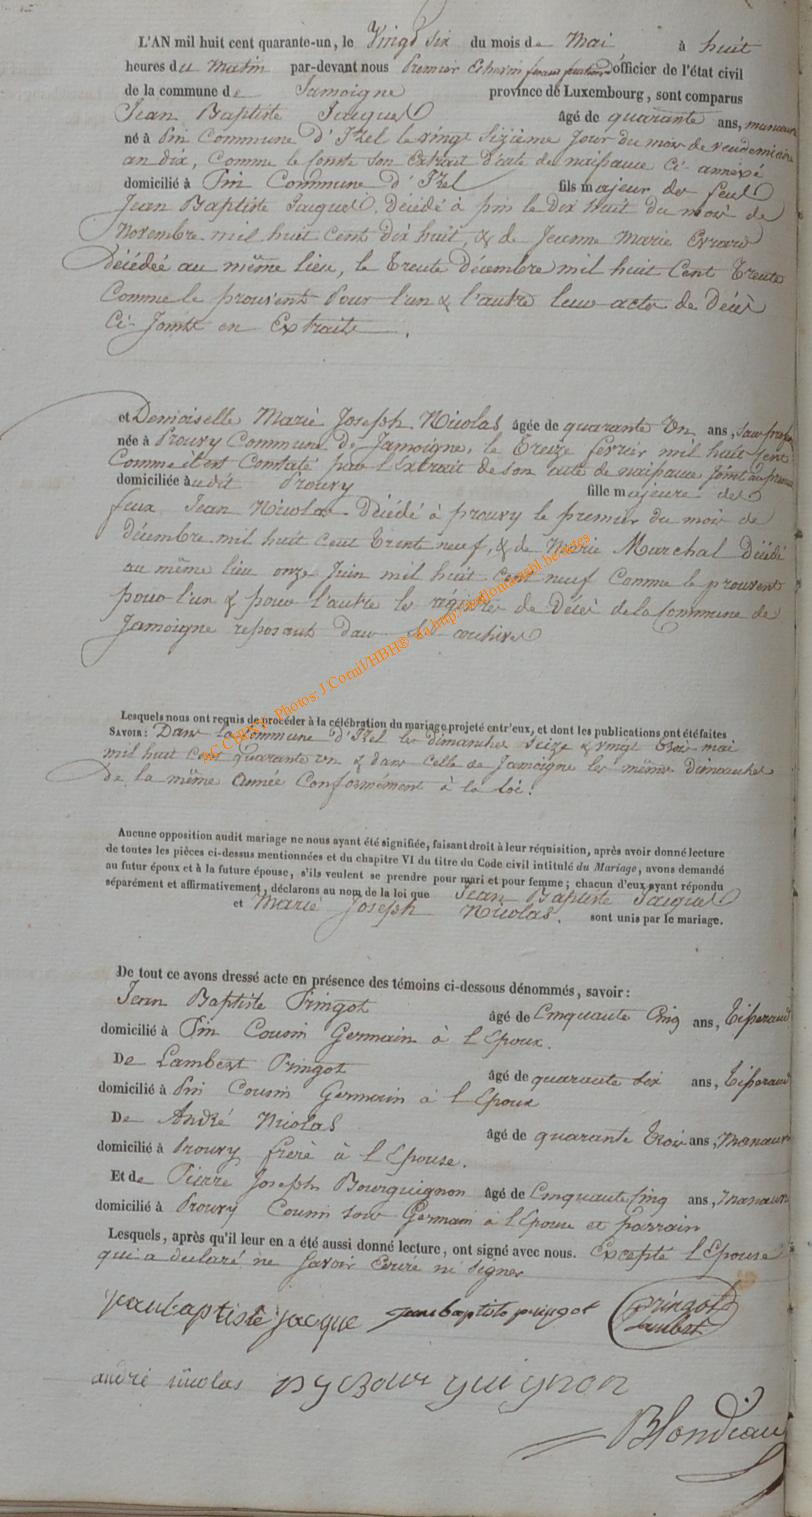 L'AN mil huit cent quarante-un, le Vingt Six du mois de Mai à huit
heures du Matin par-devant nous Premier Echevin officier de l'état civil
de la commune de Jamoigne province de Luxembourg, sont comparus
Jean Baptiste Jacques âgé de quarante ans, manœuvre
né à Pin Commune d'Izel le vingt sixième jour du mois de vendemiaire
an dix, comme le son Extrait d'acte de naissance ci annexé
domicilié à Pin Commune d'Izel fils majeur de feus
Jean Baptiste Jacques décédé à pin le Dix huit du mois de
Novembre mil huit Cent Dix huit, & de Jeanne Marie Evrard
décédée au même lieu, le trente Décembre mil huit Cent trente
Comme le prouvent pour l'un & l'autre leur acte de Décès
Ci-Joint en Extraits.
et Demoiselle Marie Joseph Nicolas âgée de quarante Un ans, sans profes
née à Prouvy Commune de Jamoigne, le Treize fevrier mil huit Cent
Comme il est Constaté par l'Extrait de son acte de naissance joint au présent
domiciliée audit Prouvy fille majeure de
feux Jean Nicolas Décédé à prouvy le premier du mois de
décembre mil huit Cent Trente neuf, & de Marie Marchal Décédé
au même lieu onze Juin mil huit Cent neuf Comme le prouvent
pour l'un & pour l'autre les régistres de Décès de la Commune de
Jamoigne reposant dans les archives
Lesquels nous ont requis de procéder à la célébration du mariage projeté entr'eux, et dont les publications ont été faites
SAVOIR : Dans la Commune d'Izel les dimanches Seize & vingt trois mai
mil huit Cent Quarante un & dans celle de Jamoigne les mêmes dimanches
de la même année Conformément à la loi.
Aucune opposition audit mariage ne nous ayant été signifiée, faisant droit à leur réquisition, après avoir donné lecture
de toutes les pièces ci-dessus mentionnées et du chapitre VI du titre du Code civil intitulé du Mariage, avons demandé
au futur époux et à la future épouse, s'ils veulent se prendre pour mari et pour femme ; chacun d'eux ayant répondu
séparément et affirmativement, déclarons au nom de la loi que Jean Baptiste Jacques
et Marie Joseph Nicolas. sont unis par le mariage.
De tout ce avons dressé acte en présence des témoins ci-dessous dénommés, savoir :
Jean Baptiste Pringot âgé de Cinquante Cinq ans, Tisserand
domicilié à Pin Cousin Germain à l'Epoux.
De Lambert Pringot âgé de quarante six ans, Tisserand
domicilié à Pin Cousin Germain à l'Epoux
De André Nicolas âgé de quarante trois ans, Manœuvre
domicilié à Prouvy frère à l'Epouse.
Et de Pierre Joseph Bourguignon âgé de Cinquante Cinq ans, Manœuvre
domicilié à Prouvy Cousin sous Germain à l'Epouse et parrain
Lesquels, après qu'il leur en a été aussi donné lecture, ont signé avec nous. Excepté l'Epouse
qui a déclaré ne savoir Ecrire ni Signer
jeanbaptiste jacque jeanbaptiste pringot pringot
lambert
andré nicolas p j Bourguignon
Blondiau